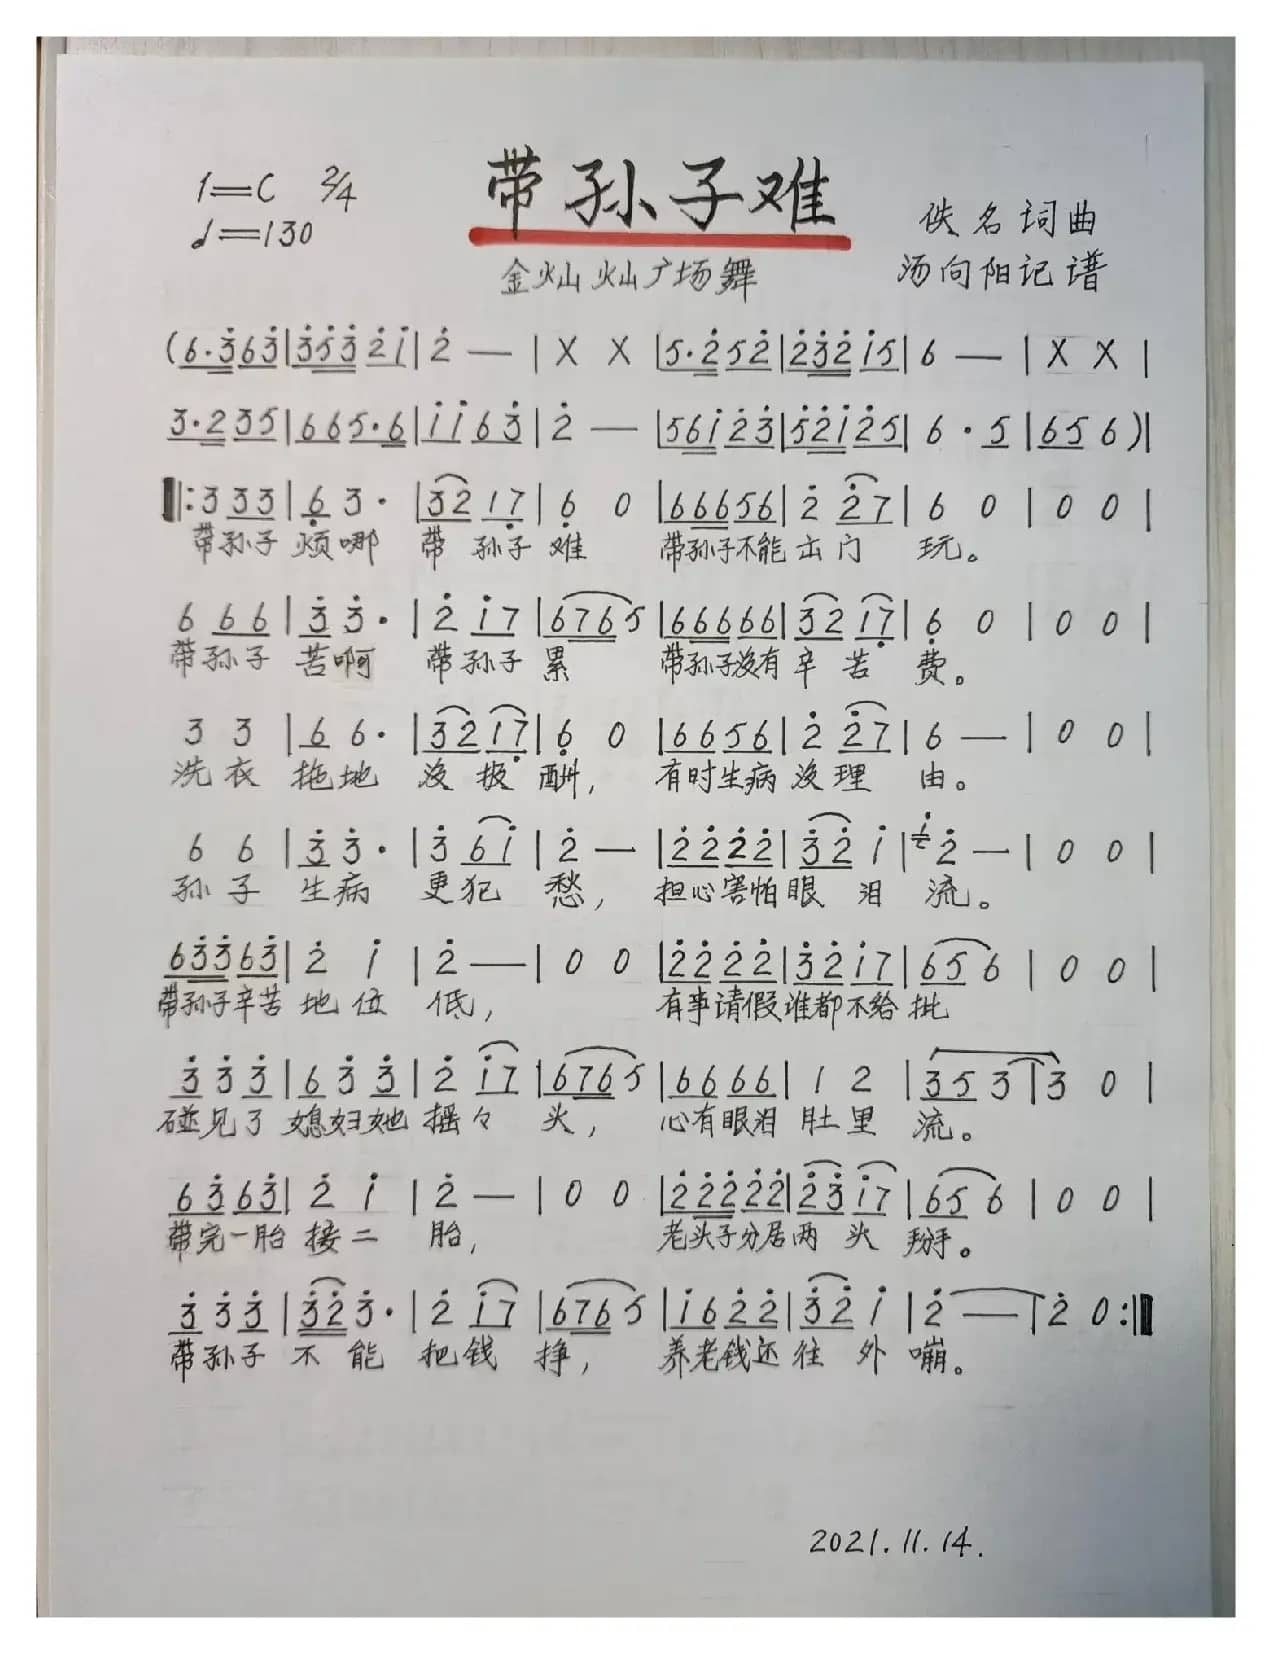 带孙子难
1=C 2/4
♩=130
佚名词曲
金灿灿广场舞
汤向阳记谱
(6·3̇63̇|3̇5̇3̇2̇1̇|2̇ — |X X |5·2̇52̇|2̇3̇2̇1̇5|6 — |X X |
3·235|665·6|1̇1̇63̇|2̇ — |561̇2̇3̇|5̇2̇1̇2̇5|6·5|656)|
‖:3 33|6̣ 3·|32 17̣|6̣ 0 |66656|2̇ 2̇7|6 0 |0 0 |
带孙子 烦哪 带 孙子 难 带孙子不能出门 玩。
6 66|3̇ 3̇·|2̇ 1̇7|6765|66666|32 17̣|6̣ 0 |0 0 |
带孙子 苦啊 带孙子 累 带孙子没有辛 苦 费。
3 3 |6 6·|32 17̣|6̣ 0 |6656|2̇ 2̇7|6 — |0 0 |
洗衣 拖地 没 报 酬, 有时生病没理 由。
6 6 |3̇ 3̇·|3̇ 61̇|2̇ — |2̇2̇2̇2̇|3̇2̇ 1̇|1̇2̇ — |0 0 |
孙子 生病 更犯 愁, 担心害怕眼 泪 流。
63̇3̇63̇|2̇ 1̇ |2̇ — |0 0 |2̇2̇2̇2̇|3̇2̇1̇7|65 6|0 0 |
带孙子辛苦 地位 低, 有事请假谁都不给批
3̇ 3̇ 3̇|6 3̇ 3̇|2̇ 1̇7|6765|6666|1 2 |35 3|3 0 |
碰见了 媳妇她 摇々 头, 心有眼泪 肚里 流。
63̇63̇|2̇ 1̇ |2̇ — |0 0 |2̇2̇2̇2̇2̇|2̇3̇ 1̇7|65 6|0 0 |
带完一胎 接二 胎, 老头子分居两 头 掰。
3̇ 3̇ 3̇|3̇2̇3̇·|2̇ 1̇7|6765|1̇62̇2̇|3̇2̇ 1̇|2̇ — |2̇ 0:‖
带孙子 不能 把钱 挣, 养老钱还往 外 嘣。
2021.11.14.